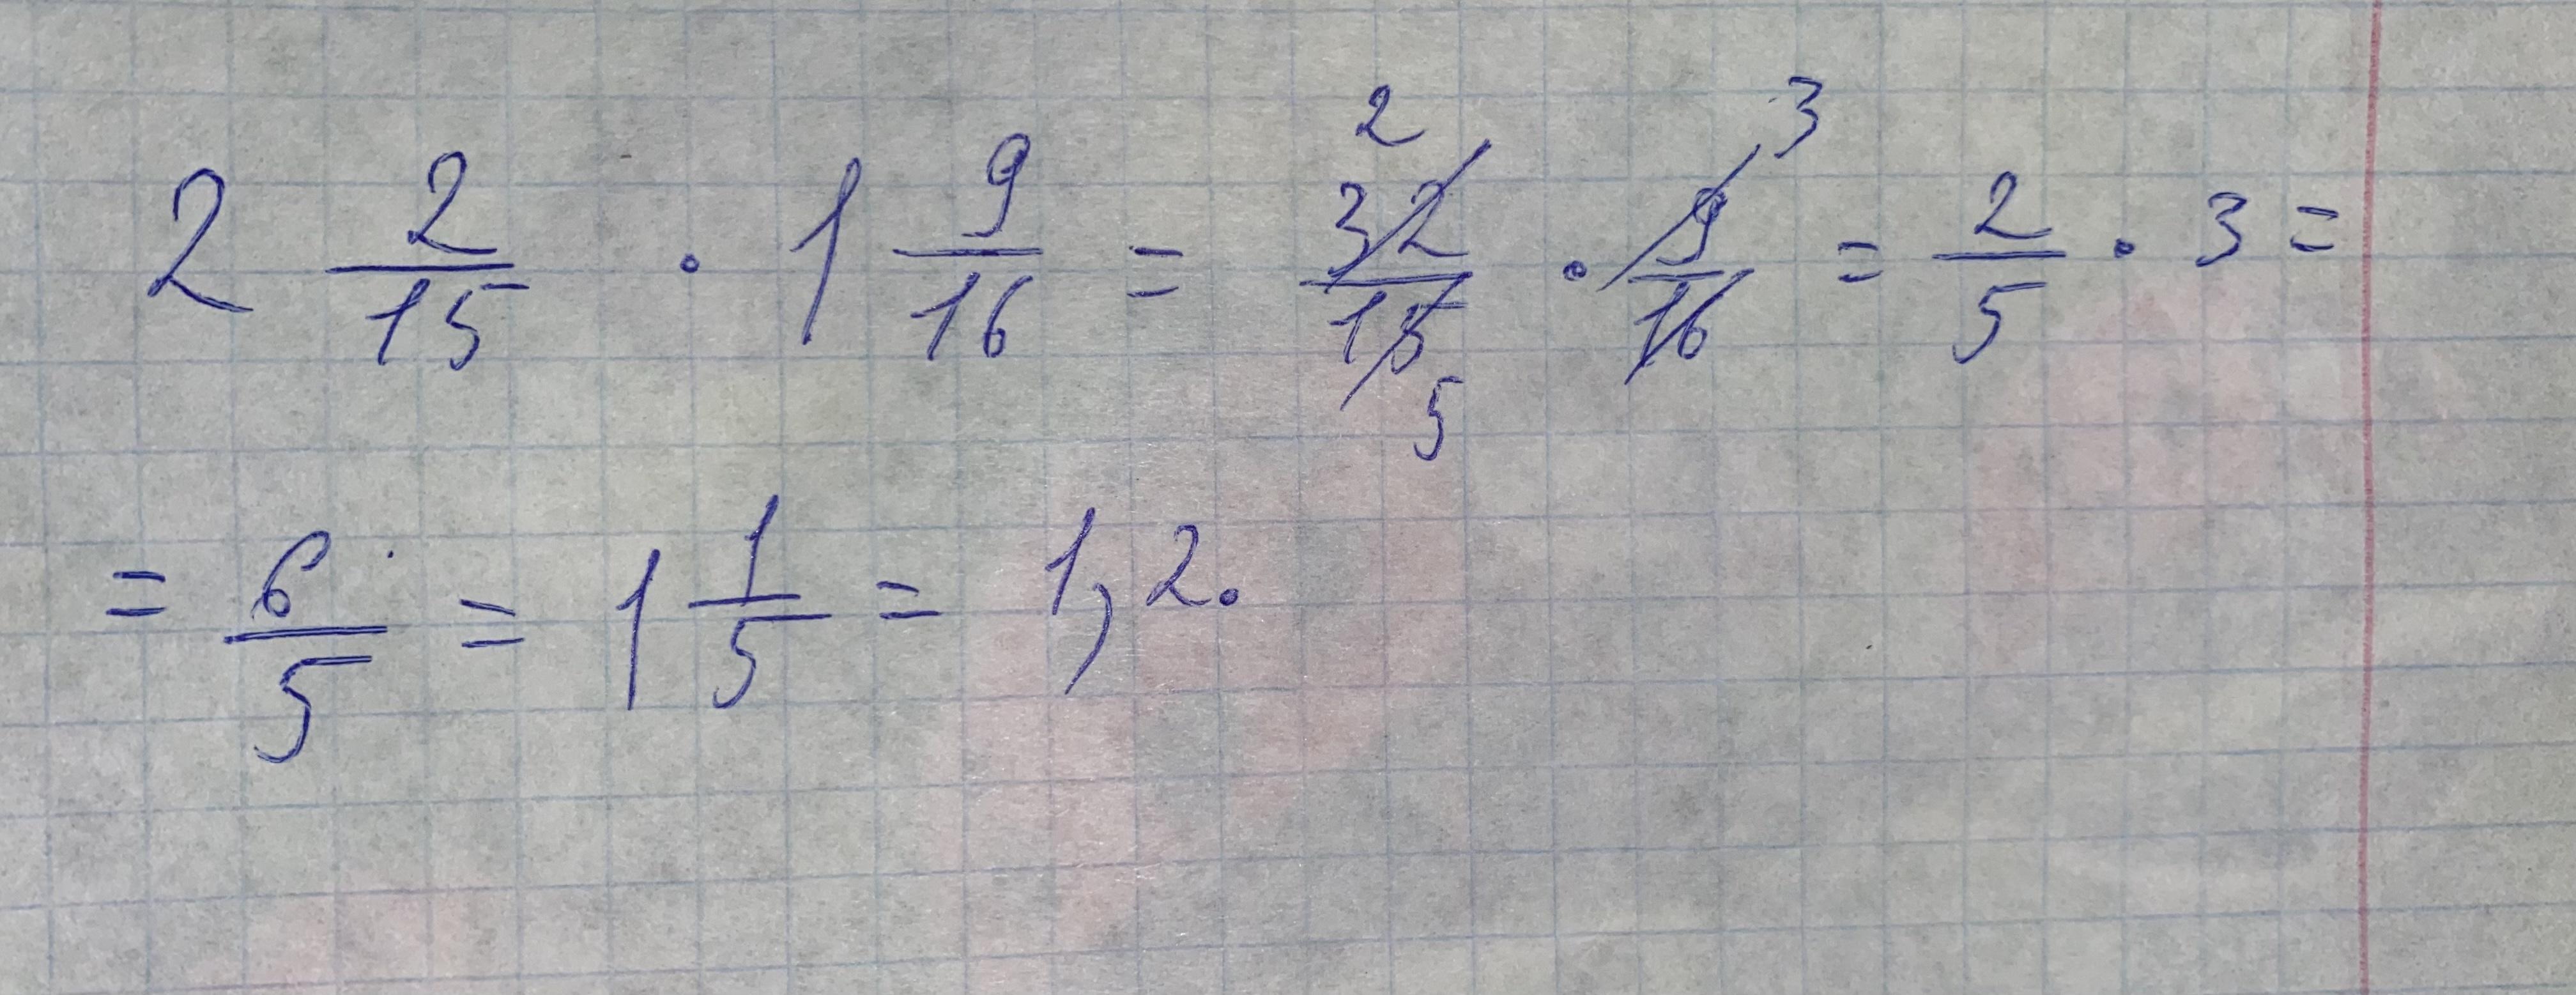 2 2/15 · 1 9/16 = 32/15 2 5 · 9/16 3 = 2/5 · 3 =
= 6/5 = 1 1/5 = 1,2.